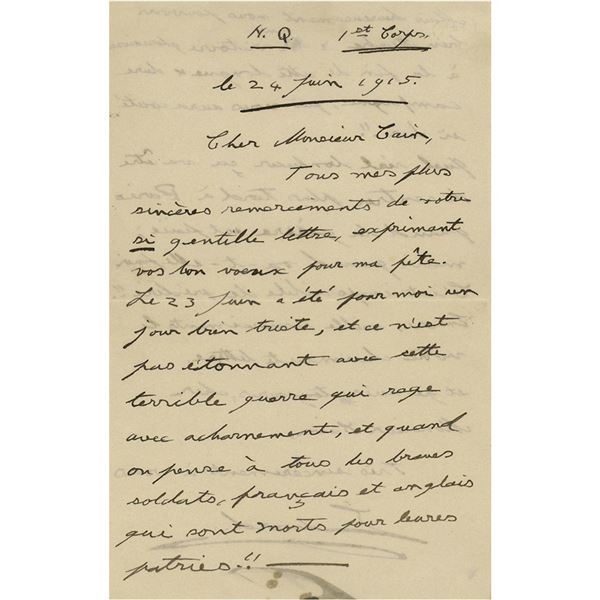 H. Q. 1st Corps.
le 24 Juin 1915.
Cher Monsieur Cain,
Tous mes plus
sincères remerciments de votre
si gentille lettre, exprimant
vos bon voeux pour ma fête.
Le 23 Juin a été pour moi un
jour bien triste, et ce n'est
pas étonnant avec cette
terrible guerre qui rage
avec acharnement, et quand
on pense à tous les braves
soldats, français et anglais
qui sont morts pour leures
patries!!